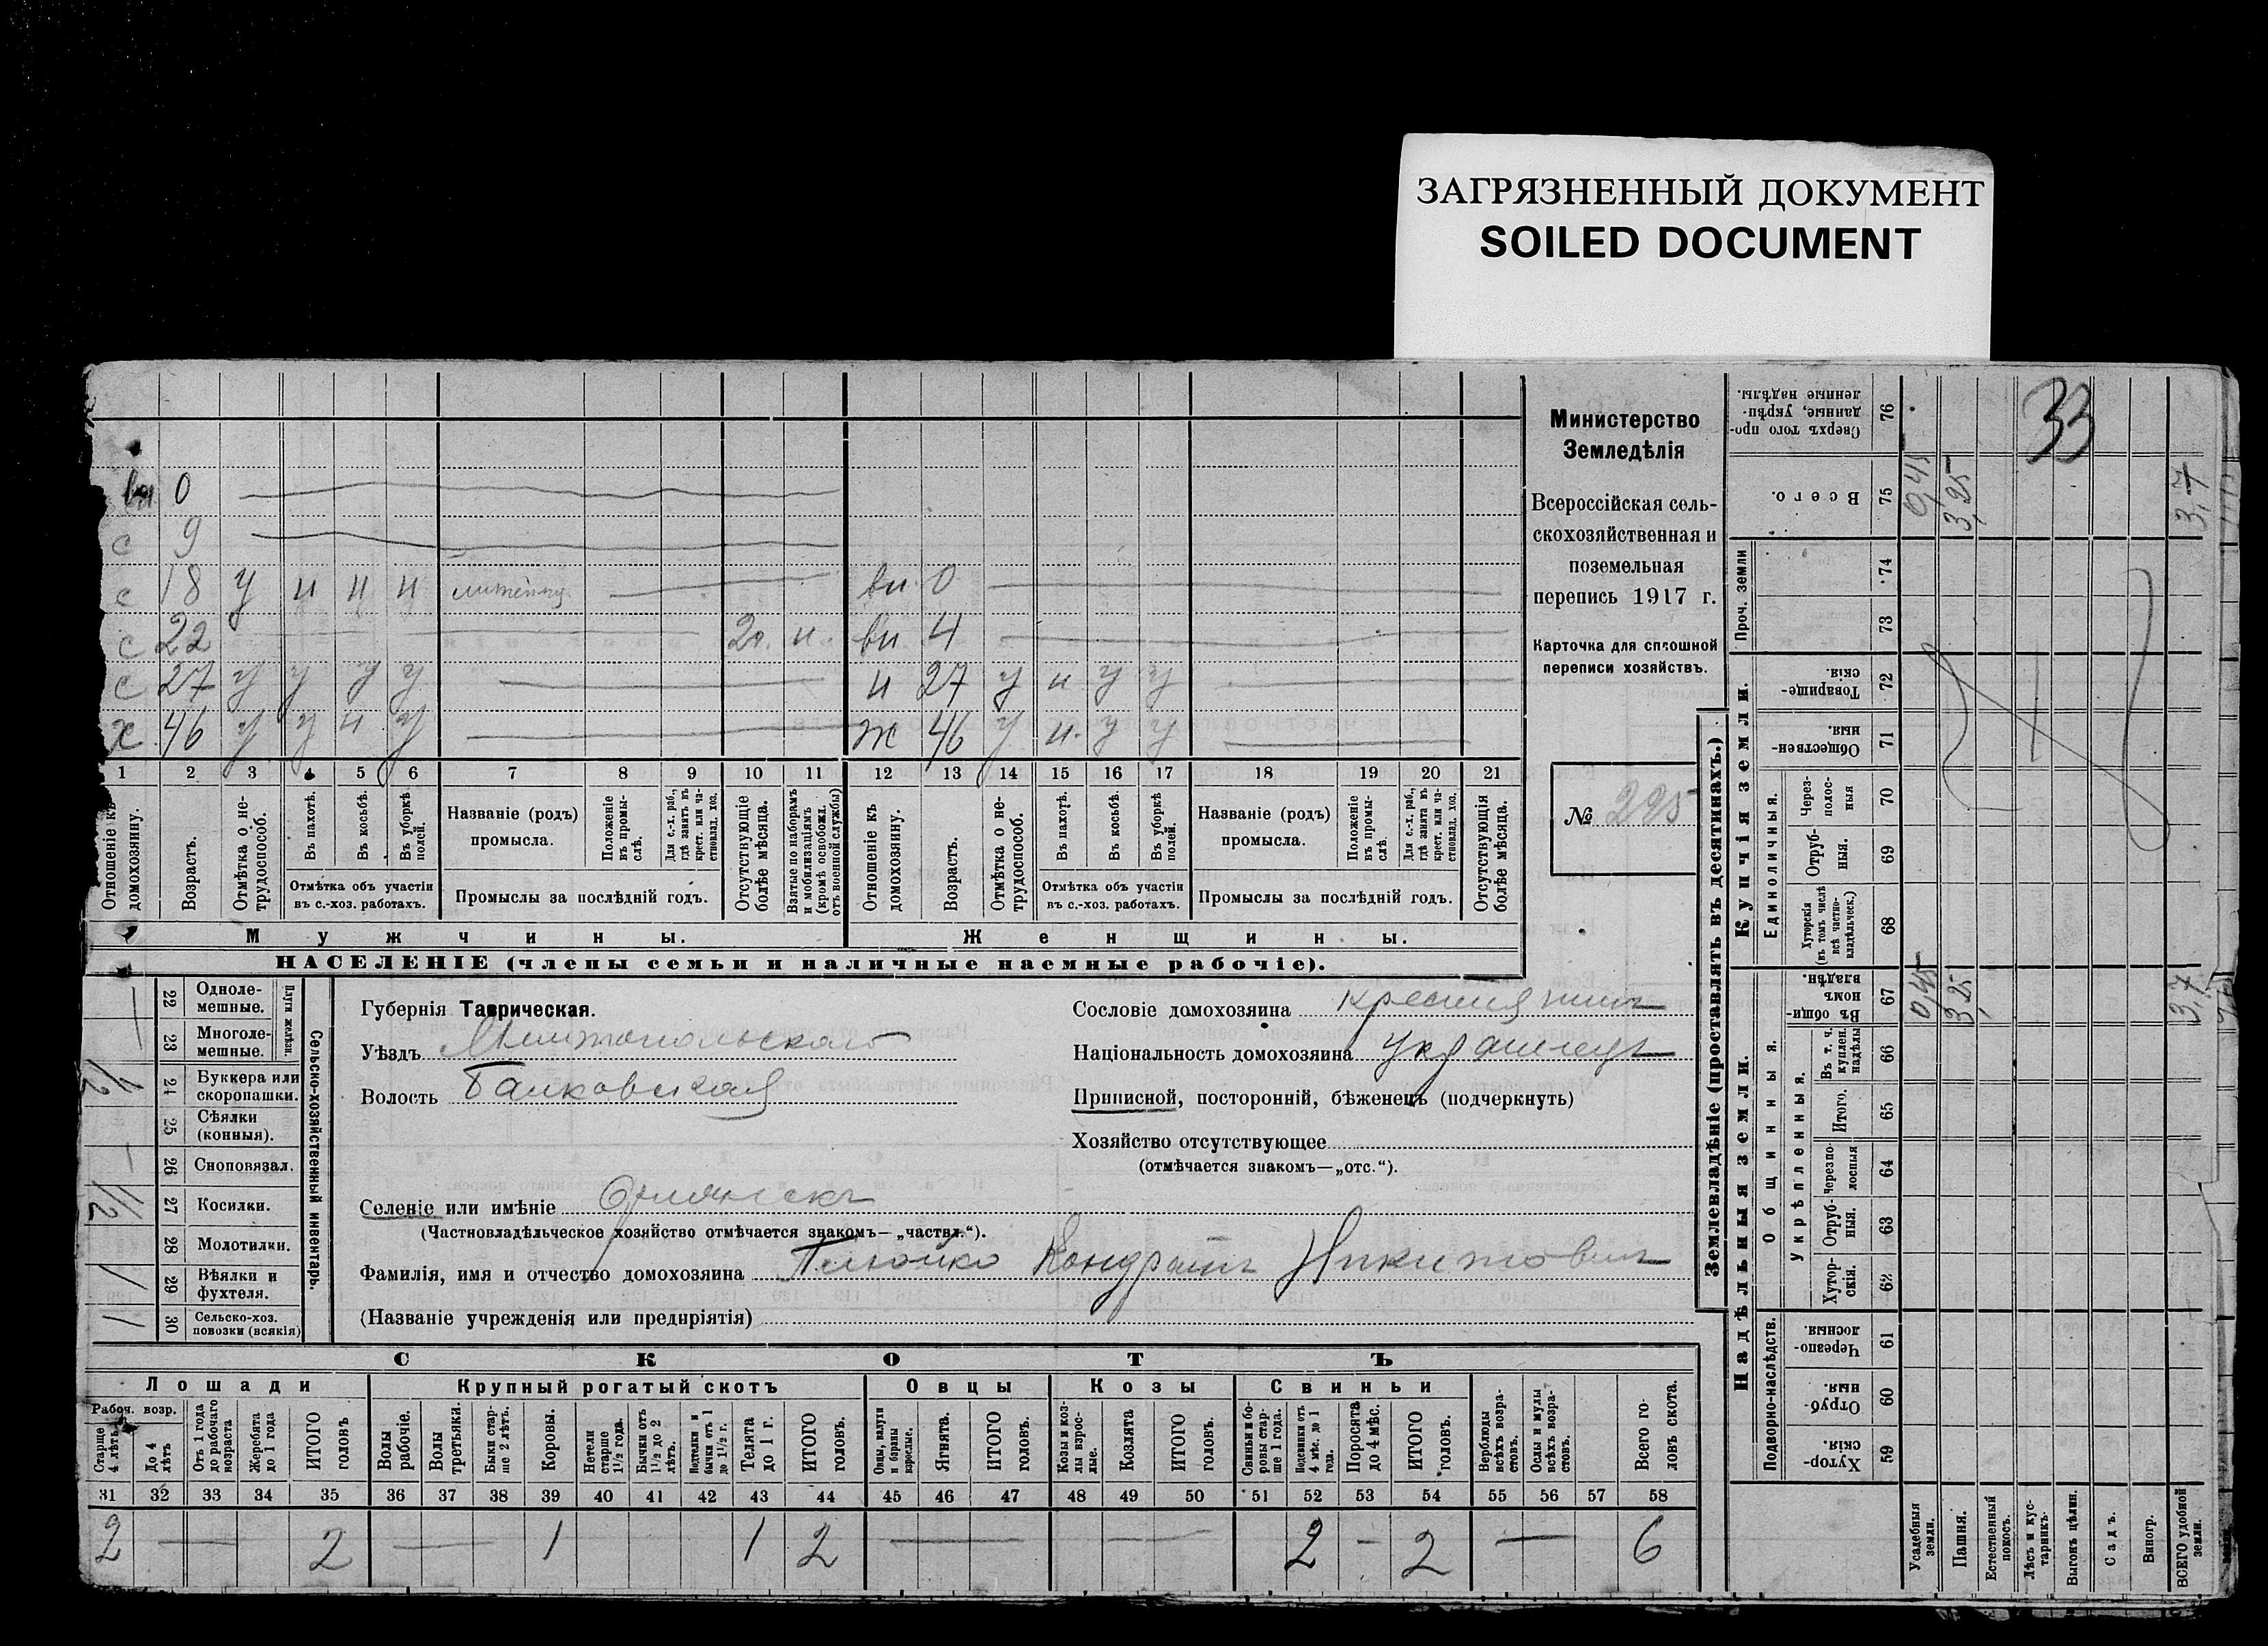 ЗАГРЯЗНЕННЫЙ ДОКУМЕНТ
SOILED DOCUMENT
33
Министерство
Земледѣлія
Всероссійская сель-
скохозяйственная и
поземельная
перепись 1917 г.
Карточка для сплошной
переписи хозяйствъ.
№ 225
вн 0
с 9
с 18 у н н н вн. 0
с 22 н. вн 4
с 27 у у у у н 27 у н у у
х 46 у у н у ж 46 у н. у у
1 2 3 4 5 6 7 8 9 10 11 12 13 14 15 16 17 18 19 20 21
Отношеніе къ домохозяину.
Возрастъ.
Отмѣтка о не-трудоспособ.
Въ пахотѣ.
Въ косьбѣ.
Въ уборкѣ полей.
Отмѣтка объ участіи
въ с.-хоз. работахъ.
Названіе (родъ)
промысла.
Положеніе въ промы-слѣ.
Для с.-х. раб., гдѣ занятъ въ крест. или ча-стновлад. хоз.
Промыслы за послѣдній годъ.
Отсутствующіе болѣе мѣсяца.
Взятые по наборамъ и мобилизаціямъ (кромѣ освобожд. отъ военной службы)
Отношеніе къ домохозяину.
Возрастъ.
Отмѣтка о не-трудоспособ.
Въ пахотѣ.
Въ косьбѣ.
Въ уборкѣ полей.
Отмѣтка объ участіи
въ с.-хоз. работахъ.
Названіе (родъ)
промысла.
Положеніе въ промы-слѣ
Для с.-х. раб., гдѣ занята въ крест. или ча-стновлад. хоз.
Промыслы за послѣдній годъ.
Отсутствующія болѣе мѣсяца.
Мужчины. Женщины.
НАСЕЛЕНІЕ (члены семьи и наличные наемные рабочіе).
Сельско-хозяйственный инвентарь.
Плуги желѣзн.
22 Одноле-мешные.
23 Многоле-мешные.
1/2 24 Буккера или скоропашки.
25 Сѣялки (конныя).
26 Сноповязал.
1/2 27 Косилки.
28 Молотилки.
1 29 Вѣялки и фухтеля.
1 30 Сельско-хоз. повозки (всякія)
Губернія Таврическая.
Уѣздъ Мелитопольскаго
Волость Балковская
Селеніе или имѣніе Орлянскъ
(Частновладѣльческое хозяйство отмѣчается знакомъ—„частвл.“).
Фамилія, имя и отчество домохозяина Кондратъ Никитовичъ
(Названіе учрежденія или предпріятія)
Сословіе домохозяина крестьянинъ
Національность домохозяина украинецъ
Приписной, посторонній, бѣженецъ (подчеркнуть)
Хозяйство отсутствующее
(отмѣчается знакомъ—„отс.“).
СКОТЪ
Лошади Крупный рогатый скотъ Овцы Козы Свиньи
Рабоч. возр.
Старше 4 лѣтъ
До 4 лѣтъ
Отъ 1 года до рабочаго возраста
Жеребята до 1 года
ИТОГО головъ
Волы рабочіе.
Волы третьяки.
Быки стар-ше 2 лѣтъ.
Коровы.
Нетели старше 1½ года.
Бычки отъ 1½ до 2 лѣтъ.
Нетелки и бычки отъ 1 до 1½ г.
Телята до 1 г.
ИТОГО головъ.
Овцы, валухи и бараны взрослые.
Ягнята.
ИТОГО головъ.
Козы и коз-лы взрос-лые.
Козлята
ИТОГО головъ.
Свиньи и бо-ровы стар-ше 1 года.
Подсвинки отъ 4 мѣс. до 1 года.
Поросята до 4 мѣс.
ИТОГО головъ.
Верблюды всѣхъ возра-стовъ.
Ослы и мулы всѣхъ возра-стовъ.
Всего го-ловъ скота.
31 32 33 34 35 36 37 38 39 40 41 42 43 44 45 46 47 48 49 50 51 52 53 54 55 56 57 58
2 — 2 — 1 1 2 — — 2 - 2 — 6
Землевладѣніе (проставлять въ десятинахъ.)
Надѣльныя земли.
Купчія земли.
Проч. земли
Подворно-наслѣдств.
Общинныя.
Укрѣпленныя.
Единоличныя.
59 Хутор-скія.
60 Отруб-ныя.
61 Черезпо-лосныя
62 Хутор-скія.
63 Отруб-ныя.
64 Черезпо-лосныя
65 Итого.
66 Въ т. ч. куплен. надѣлы
67 Въ общи-номъ владѣн.
68 Хуторскія (въ томъ числѣ всѣ частно-владѣльческ.)
69 Отруб-ныя.
70 Через-полос-ныя
71 Обществен-ныя
72 Товарище-скія.
73
74
75 Всего.
76 Сверхъ того про-данные, укрѣп-ленные надѣлы.
0,45 3,25 3,7
0,45 3,25 3,7
Усадебныя земли.
Пашня.
Естественный покосъ.
Лѣсъ и кус-тарникъ.
Выгонъ цѣлин.
Садъ.
Виногр.
ВСЕГО удобной земли.